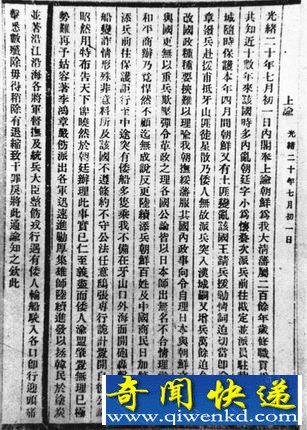 上諭 光緒二十年七月初一日
光緒二十年七月初一日內閣奉上諭朝鮮為我大清藩屬二百餘年歲修職貢為
共知近十數年來該國時多內亂朝廷字小為懷疊次派兵前往戡定並派員駐紮
城隨時保護本年四月間朝鮮又有土匪變亂該國王請兵援剿情詞迫切當
章撥兵赴援甫抵牙山匪徒星散乃倭人無故派兵突入漢城嗣又增兵萬餘迫
改國政種種要挾難以理喻我朝撫綏藩服其國內政事向令自理日本與朝鮮
與國更無以重兵欺壓強令革政之理各國公論皆以日本師出無名不合情理
和平商辦乃竟悍然不顧迄無成說反更陸續添兵朝鮮百姓及中國商民日加驚
添兵前往保護詎行至中途突有倭船多隻乘我不備在牙山口外海面開砲轟擊
船變詐情形殊非意料所及該國不遵條約不守公法任意鴟張專行詭計釁開自彼
昭然用特布告天下俾曉然於朝廷辦理此事實已仁至義盡而倭人渝盟肇釁無理已極
勢難再予姑容著李鴻章嚴飭派出各軍迅速進勦厚集雄師陸續進發以拯韓民於塗炭
並著沿江沿海各將軍督撫及統兵大臣整飭戎行遇有倭人輪船駛入各口即行迎頭痛
擊悉數殲除毋得稍有退縮致干罪戾將此通諭知之欽此
奇闻快递
www.qiwenkd.com